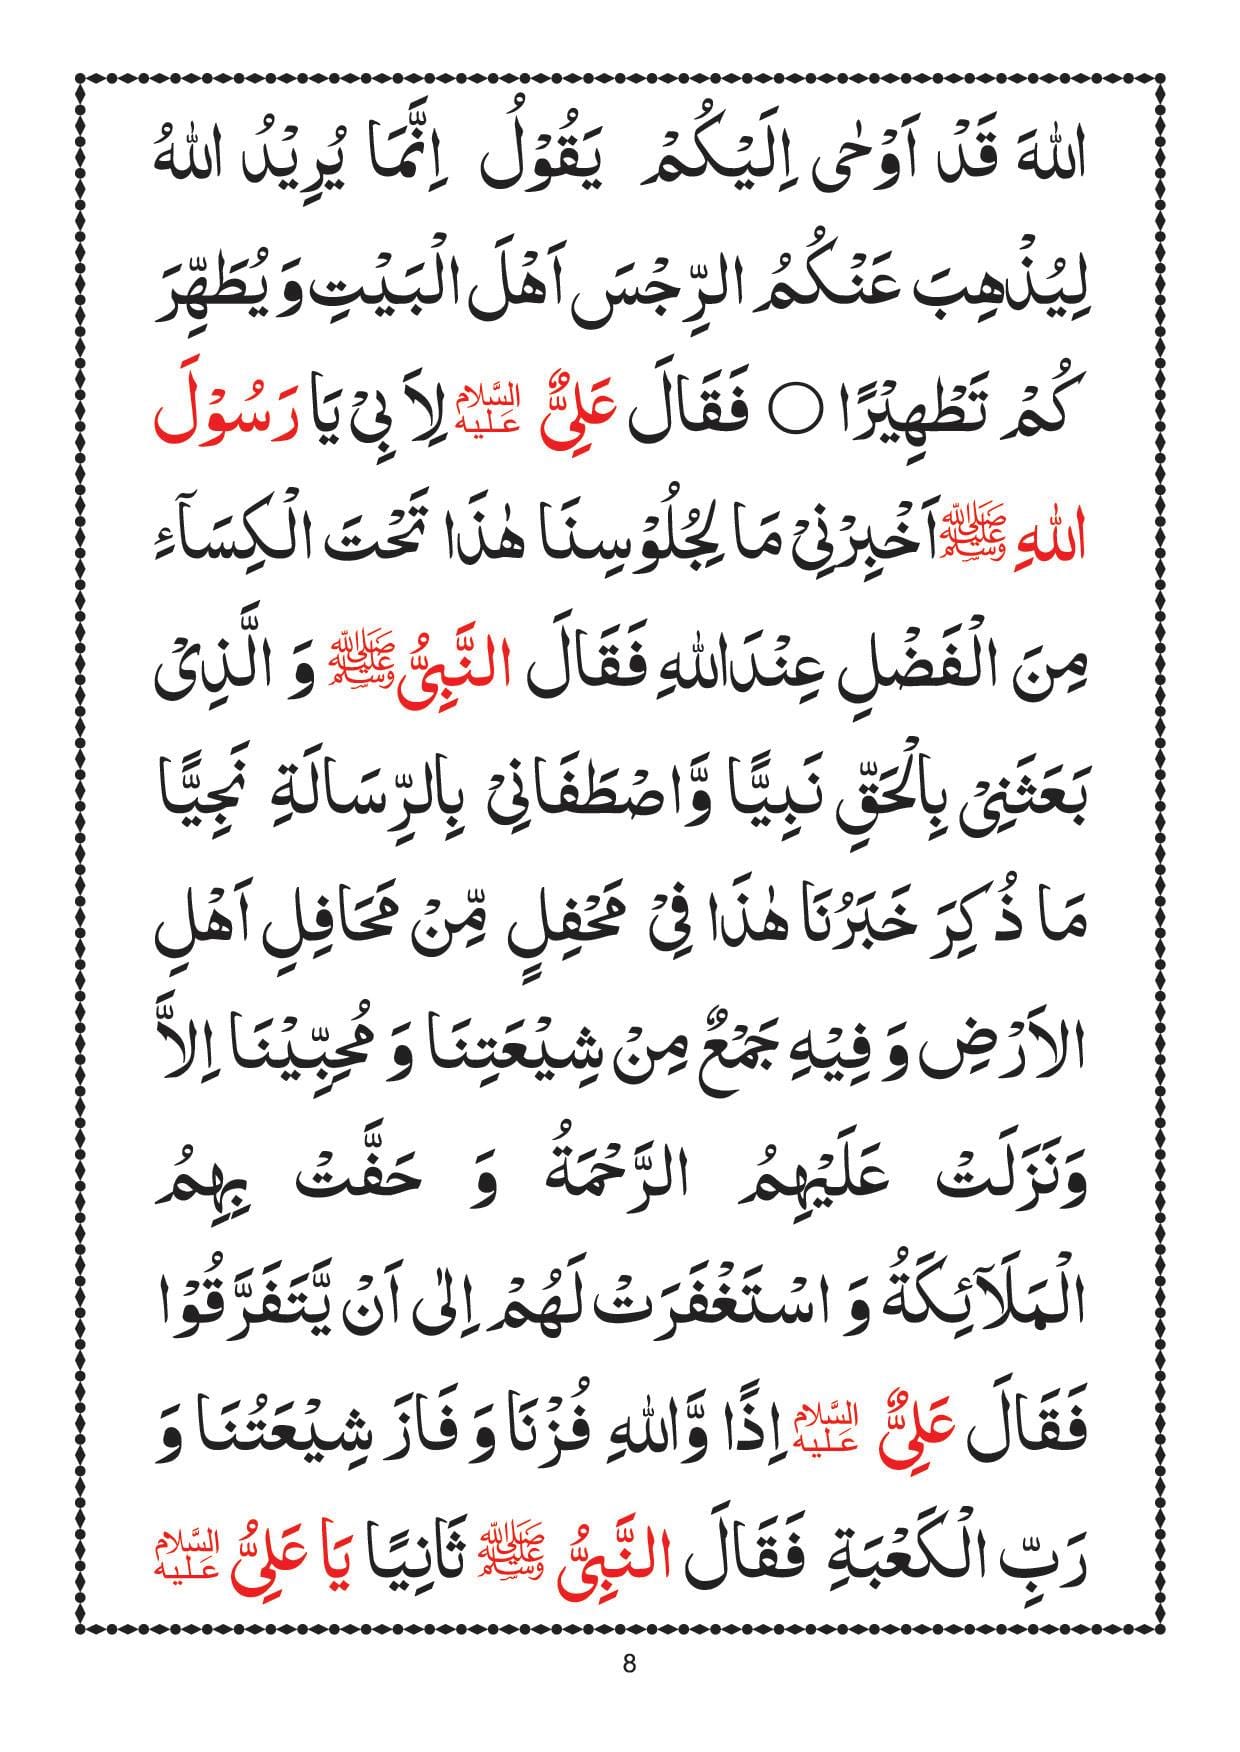 اللهَ قَدْ اَوْحٰى اِلَيْكُمْ يَقُوْلُ اِنَّمَا يُرِيْدُ اللهُ
لِيُذْهِبَ عَنْكُمُ الرِّجْسَ اَهْلَ الْبَيْتِ وَ يُطَهِّرَ
كُمْ تَطْهِيْرًا ○ فَقَالَ عَلِىٌّ عَلَيْهِ السَّلَام لِاَ بِىْ يَا رَسُوْلَ
اللهِ ﷺ اَخْبِرْنِىْ مَا لِجُلُوْسِنَا هٰذَا تَحْتَ الْكِسَآءِ
مِنَ الْفَضْلِ عِنْدَاللهِ فَقَالَ النَّبِىُّ ﷺ وَ الَّذِىْ
بَعَثَنِىْ بِالْحَقِّ نَبِيًّا وَّاصْطَفَانِىْ بِالرِّسَالَةِ نَجِيًّا
مَا ذُكِرَ خَبَرُنَا هٰذَا فِىْ مَحْفِلٍ مِّنْ مَحَافِلِ اَهْلِ
الاَرْضِ وَ فِيْهِ جَمْعٌ مِنْ شِيْعَتِنَا وَ مُحِبِّيْنَا اِلاَّ
وَنَزَلَتْ عَلَيْهِمُ الرَّحْمَةُ وَ حَفَّتْ بِهِمُ
الْمَلَآئِكَةُ وَ اسْتَغْفَرَتْ لَهُمْ اِلٰى اَنْ يَّتَفَرَّقُوْا
فَقَالَ عَلِىٌّ عَلَيْهِ السَّلَام اِذًا وَّاللهِ فُزْنَا وَ فَازَ شِيْعَتُنَا وَ
رَبِّ الْكَعْبَةِ فَقَالَ النَّبِىُّ ﷺ ثَانِيًا يَا عَلِىُّ عَلَيْهِ السَّلَام
8